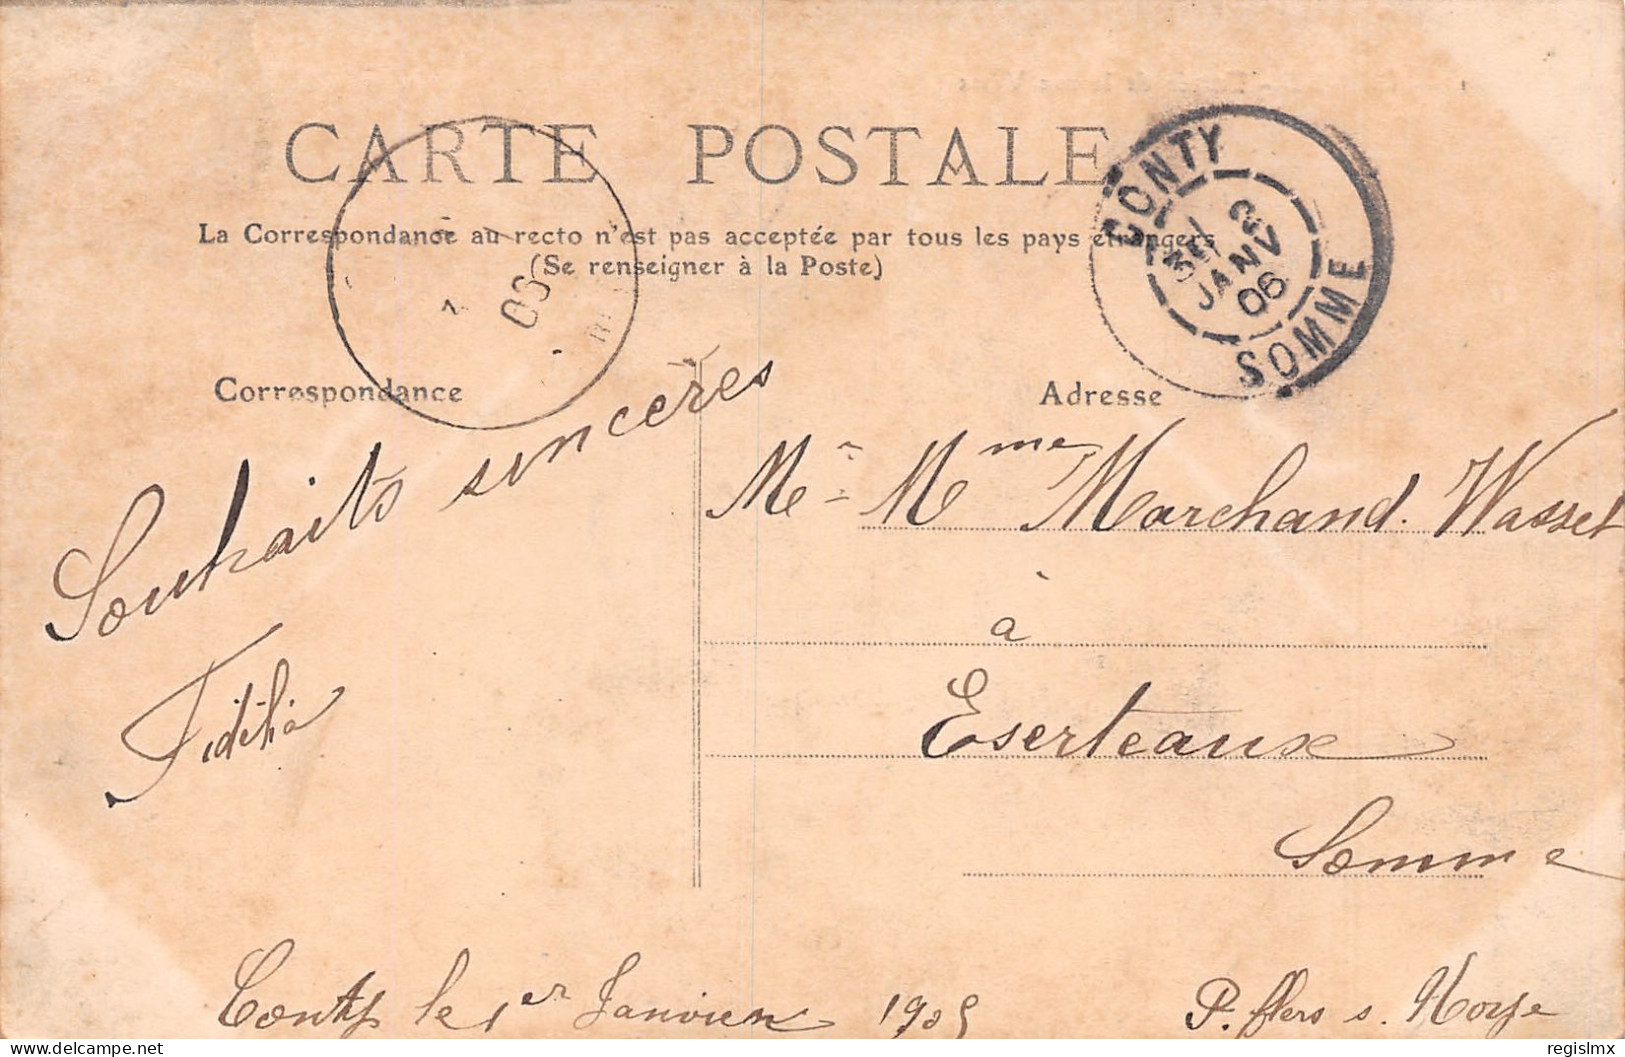 CARTE POSTALE
La Correspondance au recto n'est pas acceptée par tous les pays étrangers
(Se renseigner à la Poste)
CONTY
2
JANV
06
SOMME
06
Correspondance
Adresse
Souhaits sincères
Mr Mme Marchand. Wasset
à
Eserteaux
Somme
Conty le 1er Janvier 1905
P. flers s. Noye
regislmx